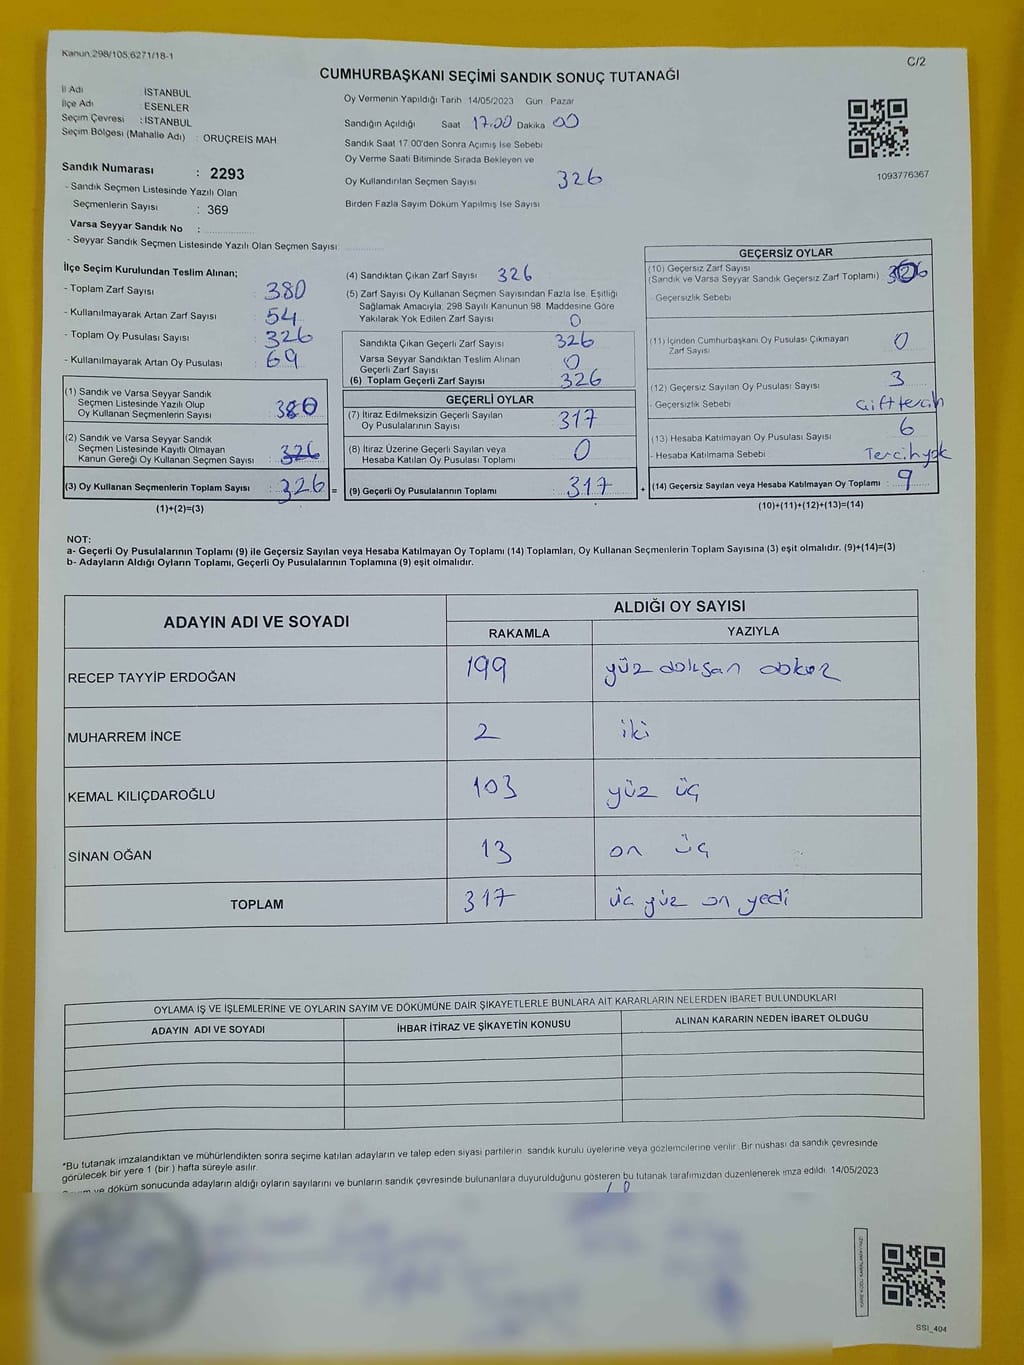 Kanun:298/105,6271/18-1
C/2
CUMHURBAŞKANI SEÇİMİ SANDIK SONUÇ TUTANAĞI
İl Adı İSTANBUL
İlçe Adı : ESENLER
Seçim Çevresi : İSTANBUL
Seçim Bölgesi (Mahalle Adı) : ORUÇREİS MAH
Sandık Numarası : 2293
- Sandık Seçmen Listesinde Yazılı Olan
Seçmenlerin Sayısı : 369
Varsa Seyyar Sandık No :
- Seyyar Sandık Seçmen Listesinde Yazılı Olan Seçmen Sayısı:
Oy Vermenin Yapıldığı Tarih 14/05/2023 Gün : Pazar
Sandığın Açıldığı Saat 17.00 Dakika 00
Sandık Saat 17:00'den Sonra Açımış İse Sebebi
Oy Verme Saati Bitiminde Sırada Bekleyen ve
Oy Kullandırılan Seçmen Sayısı 326
Birden Fazla Sayım Döküm Yapılmış İse Sayısı
1093776367
İlçe Seçim Kurulundan Teslim Alınan;
- Toplam Zarf Sayısı : 380
- Kullanılmayarak Artan Zarf Sayısı : 54
- Toplam Oy Pusulası Sayısı : 326
- Kullanılmayarak Artan Oy Pusulası : 69
(1) Sandık ve Varsa Seyyar Sandık
Seçmen Listesinde Yazılı Olup
Oy Kullanan Seçmenlerin Sayısı : 380
(2) Sandık ve Varsa Seyyar Sandık
Seçmen Listesinde Kayıtlı Olmayan
Kanun Gereği Oy Kullanan Seçmen Sayısı : 326
(3) Oy Kullanan Seçmenlerin Toplam Sayısı : 326 =
(1)+(2)=(3)
(4) Sandıktan Çıkan Zarf Sayısı 326
(5) Zarf Sayısı Oy Kullanan Seçmen Sayısından Fazla İse, Eşitliği
Sağlamak Amacıyla, 298 Sayılı Kanunun 98. Maddesine Göre
Yakılarak Yok Edilen Zarf Sayısı 0
Sandıkta Çıkan Geçerli Zarf Sayısı 326
Varsa Seyyar Sandıktan Teslim Alınan
Geçerli Zarf Sayısı 0
(6) Toplam Geçerli Zarf Sayısı 326
GEÇERLİ OYLAR
(7) İtiraz Edilmeksizin Geçerli Sayılan
Oy Pusulalarının Sayısı 317
(8) İtiraz Üzerine Geçerli Sayılan veya
Hesaba Katılan Oy Pusulası Toplamı 0
(9) Geçerli Oy Pusulalarının Toplamı : 317 +
GEÇERSİZ OYLAR
(10) Geçersiz Zarf Sayısı
(Sandık ve Varsa Seyyar Sandık Geçersiz Zarf Toplamı)
- Geçersizlik Sebebi
(11) İçinden Cumhurbaşkanı Oy Pusulası Çıkmayan
Zarf Sayısı 0
(12) Geçersiz Sayılan Oy Pusulası Sayısı 3
- Geçersizlik Sebebi Çift tercih
(13) Hesaba Katılmayan Oy Pusulası Sayısı 6
- Hesaba Katılmama Sebebi Tercih yok
(14) Geçersiz Sayılan veya Hesaba Katılmayan Oy Toplamı : 9
(10)+(11)+(12)+(13)=(14)
NOT:
a- Geçerli Oy Pusulalarının Toplamı (9) ile Geçersiz Sayılan veya Hesaba Katılmayan Oy Toplamı (14) Toplamları, Oy Kullanan Seçmenlerin Toplam Sayısına (3) eşit olmalıdır. (9)+(14)=(3)
b- Adayların Aldığı Oyların Toplamı, Geçerli Oy Pusulalarının Toplamına (9) eşit olmalıdır.
ADAYIN ADI VE SOYADI
ALDIĞI OY SAYISI
RAKAMLA YAZIYLA
RECEP TAYYİP ERDOĞAN 199 yüz doksan dokuz
MUHARREM İNCE 2 iki
KEMAL KILIÇDAROĞLU 103 yüz üç
SİNAN OĞAN 13 on üç
TOPLAM 317 üç yüz on yedi
OYLAMA İŞ VE İŞLEMLERİNE VE OYLARIN SAYIM VE DÖKÜMÜNE DAİR ŞİKAYETLERLE BUNLARA AİT KARARLARIN NELERDEN İBARET BULUNDUKLARI
ADAYIN ADI VE SOYADI İHBAR İTİRAZ VE ŞİKAYETİN KONUSU ALINAN KARARIN NEDEN İBARET OLDUĞU
*Bu tutanak imzalandıktan ve mühürlendikten sonra seçime katılan adayların ve talep eden siyasi partilerin sandık kurulu üyelerine veya gözlemcilerine verilir. Bir nüshası da sandık çevresinde
görülecek bir yere 1 (bir ) hafta süreyle asılır.
ve döküm sonucunda adayların aldığı oyların sayılarını ve bunların sandık çevresinde bulunanlara duyurulduğunu gösteren bu tutanak tarafımızdan düzenlenerek imza edildi. 14/05/2023
SSI_404